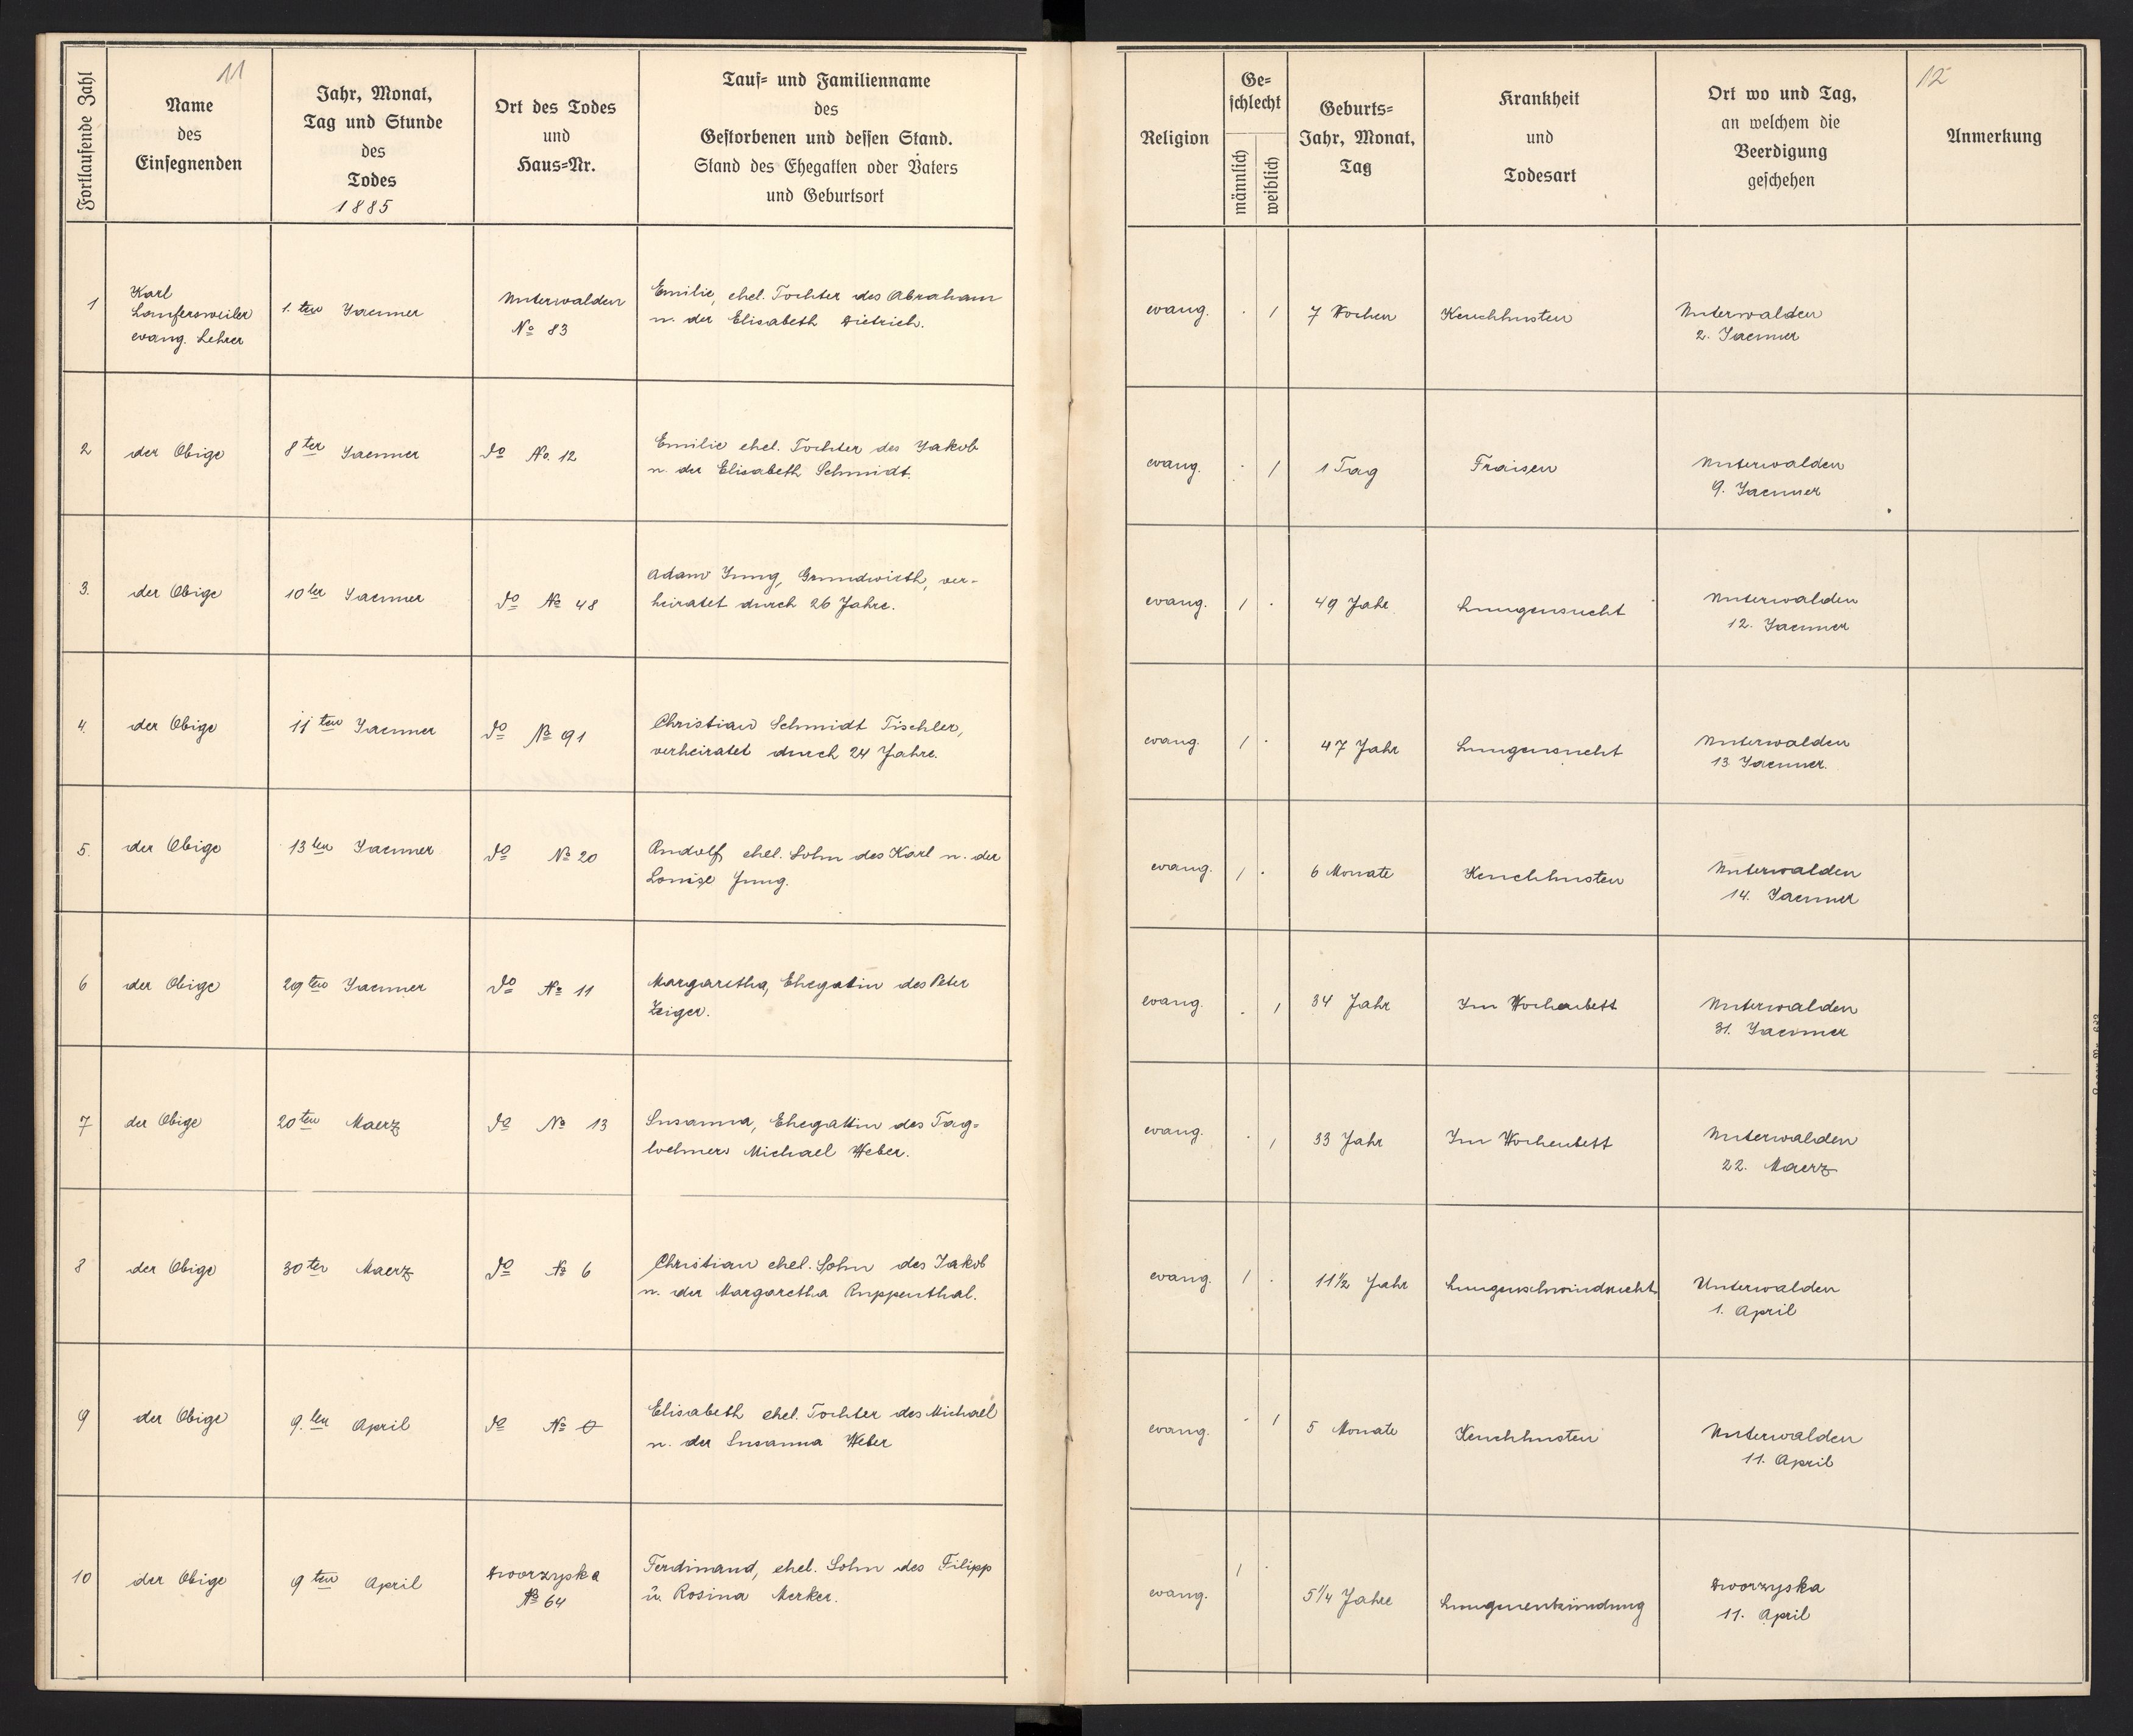 11
Fortlaufende Zahl
Name
des
Einsegnenden
Jahr, Monat,
Tag und Stunde
des
Todes
1885
Ort des Todes
und
Haus=Nr.
Tauf= und Familienname
des
Gestorbenen und dessen Stand.
Stand des Ehegatten oder Vaters
und Geburtsort
Religion
Ge=
schlecht
männlich
weiblich
Geburts=
Jahr, Monat,
Tag
Krankheit
und
Todesart
Ort wo und Tag,
an welchem die
Beerdigung
geschehen
12
Anmerkung
1
Karl
Laufersweiler
evang. Lehrer
1. ten Jaenner
Unterwalden
No 83
Emilie, ehel. Tochter des Abraham
u. der Elisabeth Dietrich.
evang. . 1 7 Wochen Keuchhusten
Unterwalden
2. Jaenner
2 der Obige 8ter Jaenner do No. 12
Emilie ehel. Tochter des Jakob
u. der Elisabeth Schmidt.
evang. . 1 1 Tag Fraisen
Unterwalden
9. Jaenner
3. der Obige 10ter Jaenner do No 48
Adam Jung, Grundwirth, ver-
heiratet durch 26 Jahre.
evang. 1 . 49 Jahr Lungensucht
Unterwalden
12. Jaenner
4. der Obige 11ten Jaenner do No 91
Christian Schmidt Tischler,
verheiratet durch 24 Jahre.
evang. 1 . 47 Jahr Lungensucht
Unterwalden
13 Jaenner.
5. der Obige 13ten Jaenner do No 20
Rudolf, ehel. Sohn des Karl u. der
Louise Jung.
evang. 1 . 6 Monate Keuchhusten
Unterwalden
14. Jaenner
6 der Obige 29ten Jaenner do No 11
Margaretha, Ehegatin des Peter
Zeiger.
evang. . 1 34 Jahr Im Wochenbett
Unterwalden
31. Jaenner
7 der Obige 20ten Maerz do No 13
Susanna, Ehegattin des Tag=
loehners Michael Weber.
evang. . 1 33 Jahr Im Wochenbett
Unterwalden
22. Maerz
8 der Obige 30ter Maerz do No 6
Christian ehel. Sohn des Jakob
u. der Margaretha Ruppenthal.
evang. 1 . 11½ Jahr Lungenschwindsucht
Unterwalden
1. April
9 der Obige 9.ten April do No
Elisabeth ehel. Tochter des Michael
u. der Susanna Weber
evang. . 1 5 Monate Keuchhusten
Unterwalden
11. April
10 der Obige 9ten April
Dworzyska
No 64
Ferdinand, ehel. Sohn des Filipp
u. Rosina Merker.
evang. 1 . 5¼ Jahre Lungenentzündung
Dworzyska
11. April